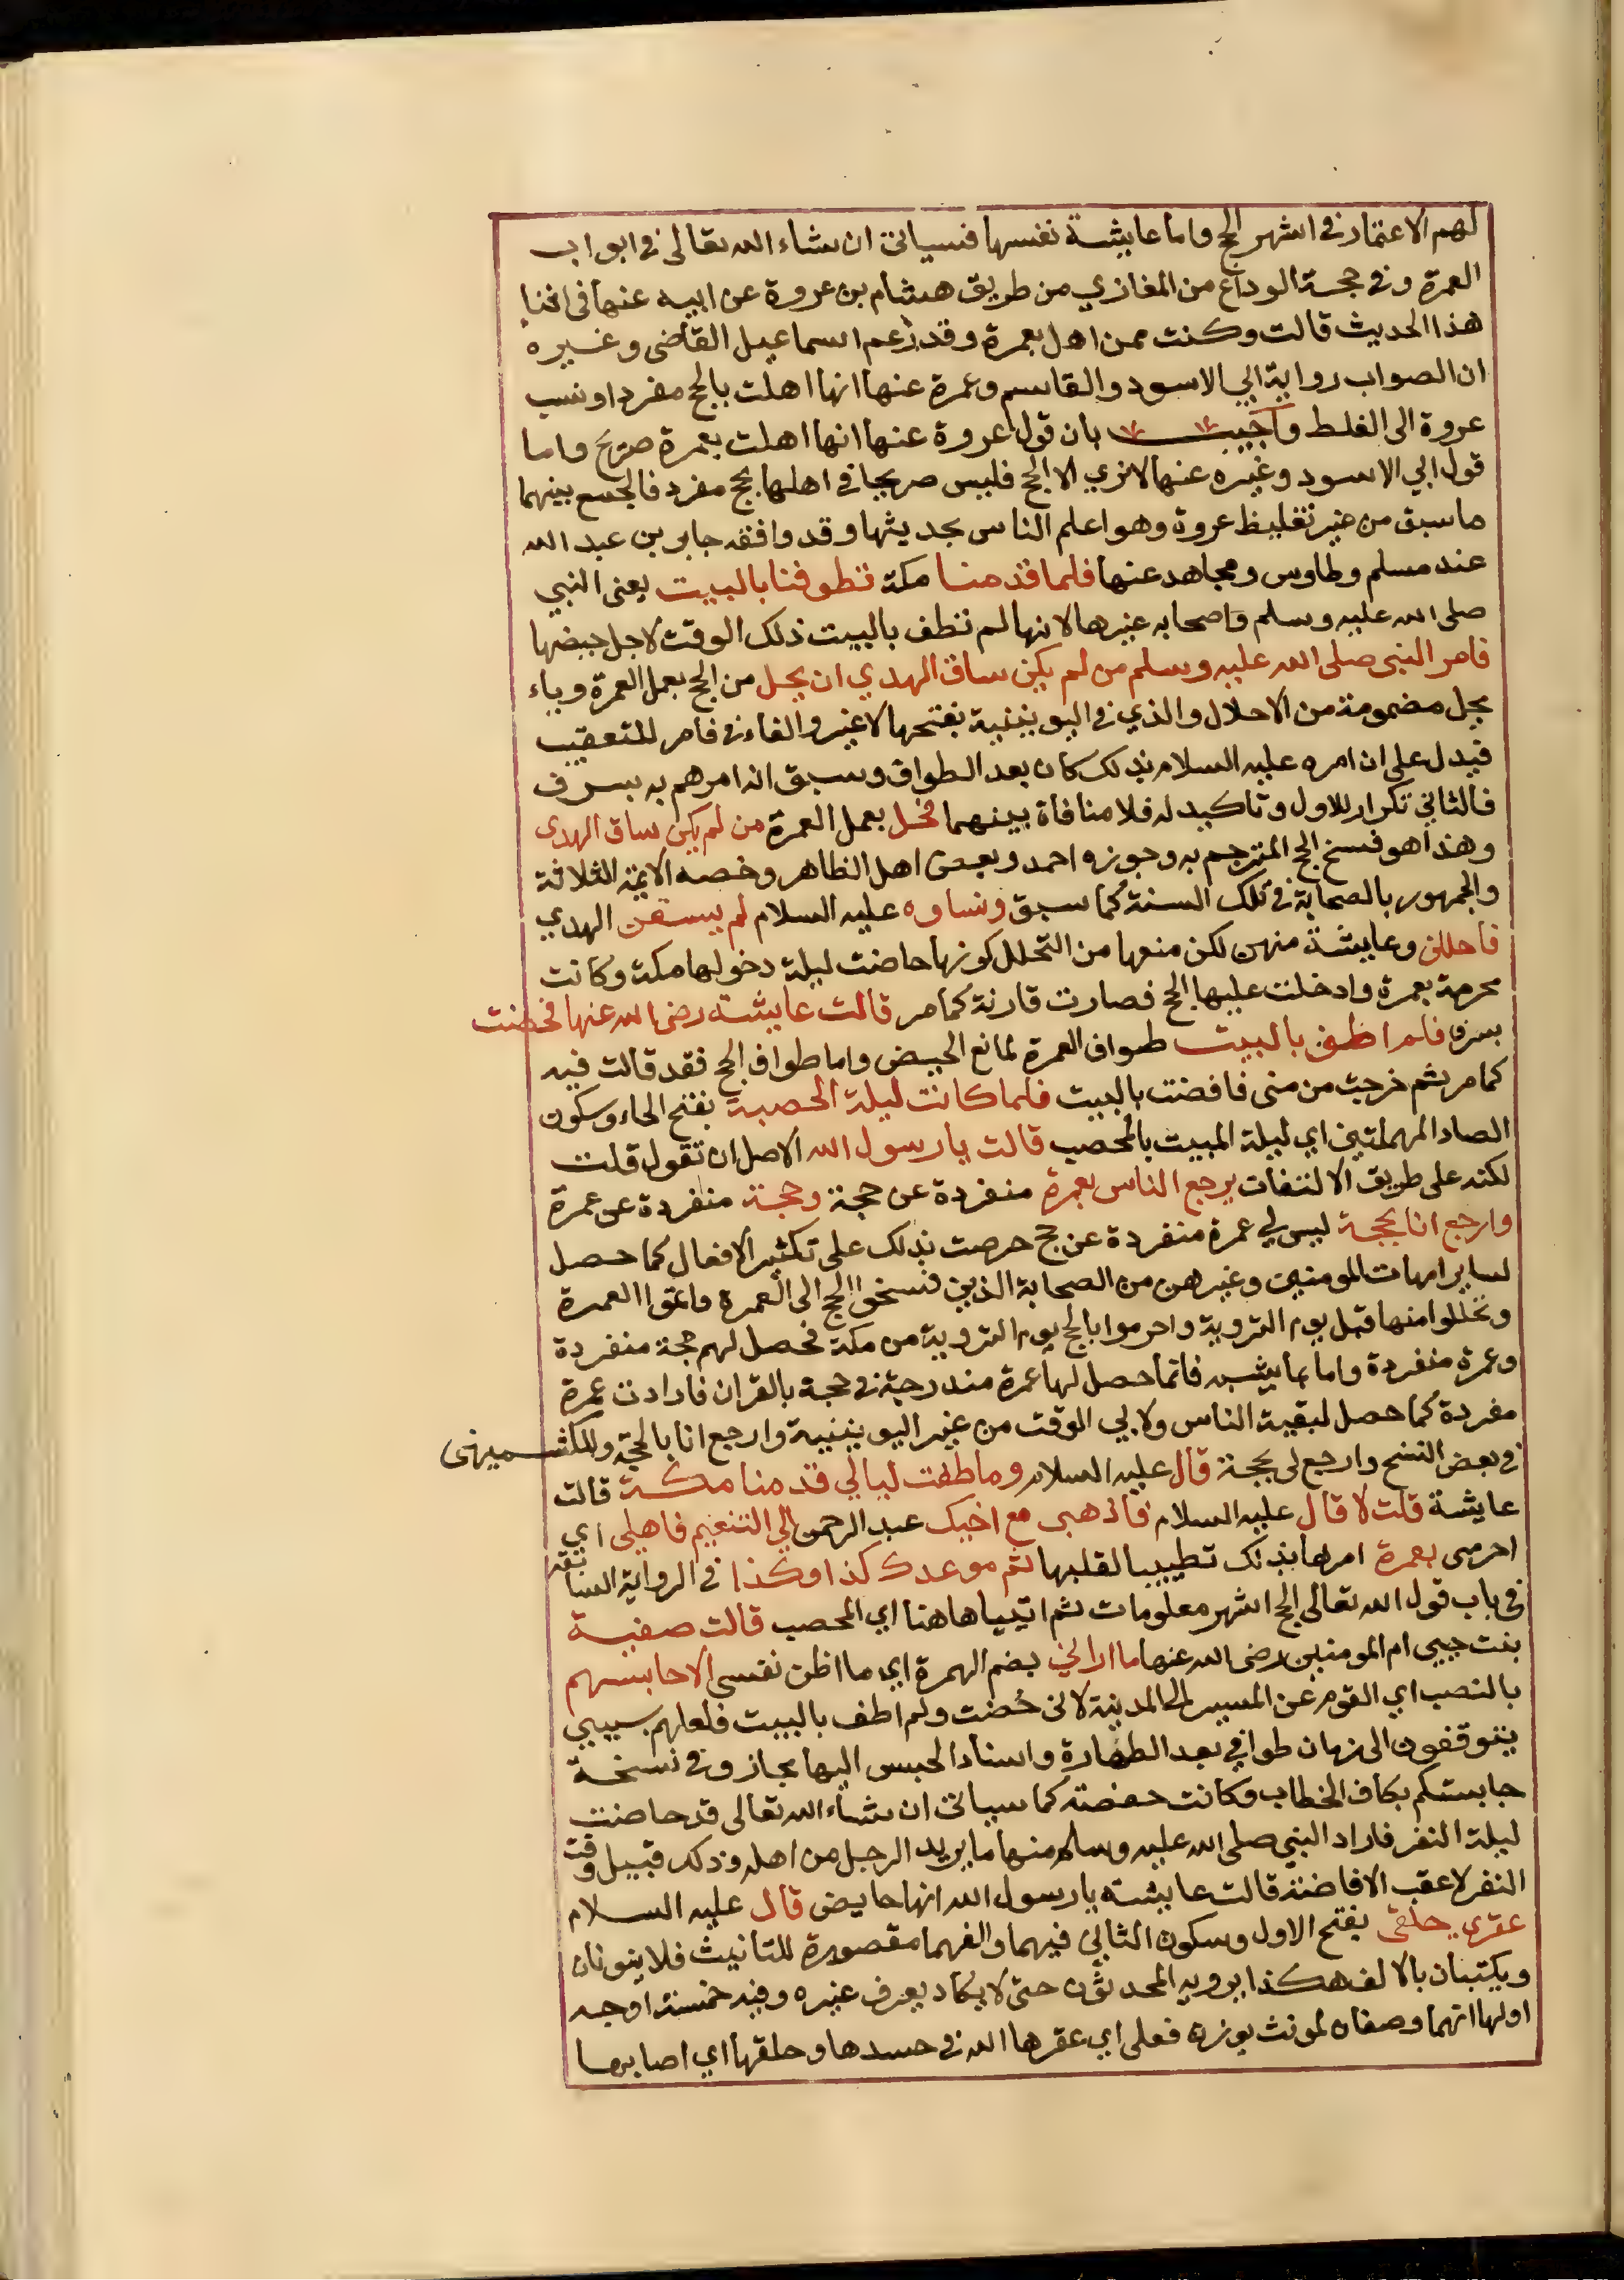 لهم الاعتمار في اشهر الحج واما عايشة نفسها فسياتي ان شاء الله تعالى في ابواب
العمرة وفي حجة الوداع من المغازي من طريق هشام بن عروة عن ابيه عنها في اثنا
هذا الحديث قالت وكنت ممن اهل بعمرة وقد زعم اسماعيل القاضي وغيره
ان الصواب رواية ابي الاسود والقاسم وعمرة عنها انها اهلت بالحج مفردا ونسب
عروة الى الغلط واجيب بان قول عروة عنها انها اهلت بعمرة صريح واما
قول ابي الاسود وغيره عنها لا نري الا الحج فليس صريحا في اهلها بحج مفرد فالجمع بينهما
ما سبق من غير تغليظ عروة وهو اعلم الناس بحديثها وقد وافقه جابر بن عبد الله
عند مسلم وطاوس ومجاهد عنها فلما قدمنا مكة تطوفنا بالبيت يعني النبي
صلى الله عليه وسلم واصحابه غيرها لانها لم تطف بالبيت ذلك الوقت لاجل حيضها
فامر النبي صلى الله عليه وسلم من لم يكن ساق الهدي ان يحل من الحج بعمل العمرة وياء
يحل مضمومة من الاحلال والذي في اليونينية بفتحها لا غير والفاء في فامر للتعقيب
فيدل على ان امره عليه السلام بذلك كان بعد الطواف وسبق انه امرهم به بسرف
فالثاني تكرار للاول وتاكيد له فلا منافاة بينهما فحل بعمل العمرة من لم يكن ساق الهدى
وهذا هو فسخ الحج المترجم به وجوزه احمد وبعض اهل الظاهر وخصه الايمة الثلاثة
والجمهور بالصحابة في تلك السنة كما سبق ونساوه عليه السلام لم يسقن الهدي
فاحللن وعايشة منهن لكن منعها من التحلل كونها حاضت ليلة دخولها مكة وكانت
محرمة بعمرة وادخلت عليها الحج فصارت قارنة كما مر قالت عايشة رضى الله عنها فحضت
بسرف فلم اطف بالبيت طواف العمرة لمانع الحيض واما طواف الحج فقد قالت فيه
كما مر ثم خرجت من منى فافضت بالبيت فلما كانت ليلة الحصبة بفتح الحاء وسكون
الصاد المهملتين اي ليلة المبيت بالمحصب قالت يا رسول الله الاصل ان تقول قلت
لكنه على طريق الالتفات يرجع الناس بعمرة منفردة عن حجة وحجة منفردة عن عمرة
وارجع انا بحجة ليس لي عمرة منفردة عن حج حرصت بذلك على تكثير الافعال كما حصل
لساير امهات المومنين وغيرهن من الصحابة الذين فسخوا الحج الى العمرة واتموا العمرة
وتحللوا منها قبل يوم التروية واحرموا بالحج يوم التروية من مكة فحصل لهم حجة منفردة
وعمرة منفردة واما عايشه فانما حصل لها عمرة مندرجة في حجة بالقران فارادت عمرة
مفردة كما حصل لبقية الناس ولابي الوقت من غير اليونينية وارجع انا بالحجة وللكشميهنى
في بعض النسخ وارجع لى بحجة قال عليه السلام وما طفت ليالي قدمنا مكة قالت
عايشة قلت لا قال عليه السلام فاذهبى مع اخيك عبد الرحمن الي التنعيم فاهلى اي
احرمى بعمرة امرها بذلك تطييبا لقلبها ثم موعدك كذا وكذا في الرواية السابقة
في باب قول الله تعالى الحج اشهر معلومات ثم ائتيا هاهنا اي المحصب قالت صفية
بنت حيي ام المومنين رضى الله عنها ما اراني بضم الهمزة اي ما اظن نفسى الا حابستهم
بالنصب اي القوم عن المسير الى المدينة لانى حضت ولم اطف بالبيت فلعلهم بسببي
يتوقفون الى زمان طوافي بعد الطهارة واسناد الحبس اليها مجاز وفي نسخة
حابستكم بكاف الخطاب وكانت صفية كما سياتي ان شاء الله تعالى قد حاضت
ليلة النفر فاراد النبي صلى الله عليه وسلم منها ما يريد الرجل من اهله وذلك قبيل وقت
النفر لا عقب الافاضة قالت عايشة يا رسول الله انها حايض قال عليه السلام
عقرى حلقى بفتح الاول وسكون الثاني فيهما والفهما مقصورة للتانيث فلا ينونان
ويكتبان بالالف هكذا يرويه المحدثون حتى لا يكاد يعرف غيره وفيه خمسة اوجه
اولها انهما وصفان لمونث بوزن فعلى اي عقرها الله في جسدها وحلقها اي اصابها